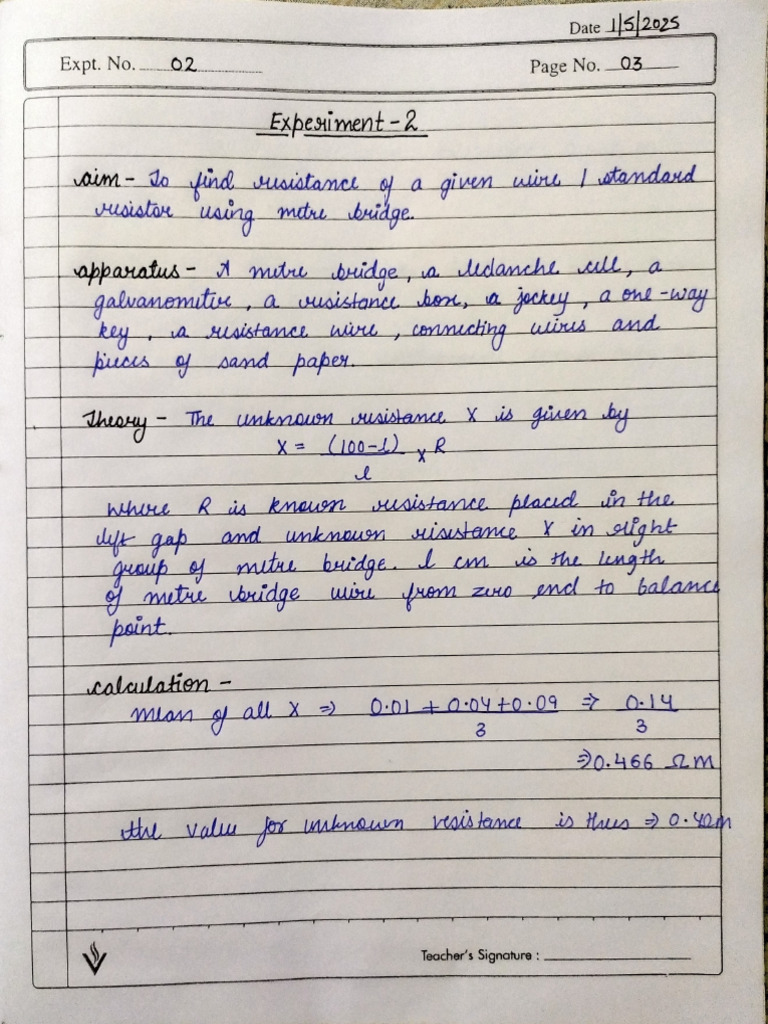 Date 1/5/2025
Expt. No. 02
Page No. 03
Experiment - 2
aim - To find resistance of a given wire / standard
resistor using metre bridge.
apparatus - A metre bridge, a leclanche cell, a
galvanometer, a resistance box, a jockey, a one-way
key, a resistance wire, connecting wires and
pieces of sand paper.
Theory - The unknown resistance X is given by
X = (100-l) x R
l
where R is known resistance placed in the
left gap and unknown risistance X in right
group of metre bridge. l cm is the length
of metre bridge wire from zero end to balance
point.
calculation -
mean of all X ⇒ 0.01 + 0.04 + 0.09 ⇒ 0.14
3 3
⇒ 0.466 Ωm
the value for unknown resistance is thus ⇒ 0.4Ωm
Teacher's Signature :